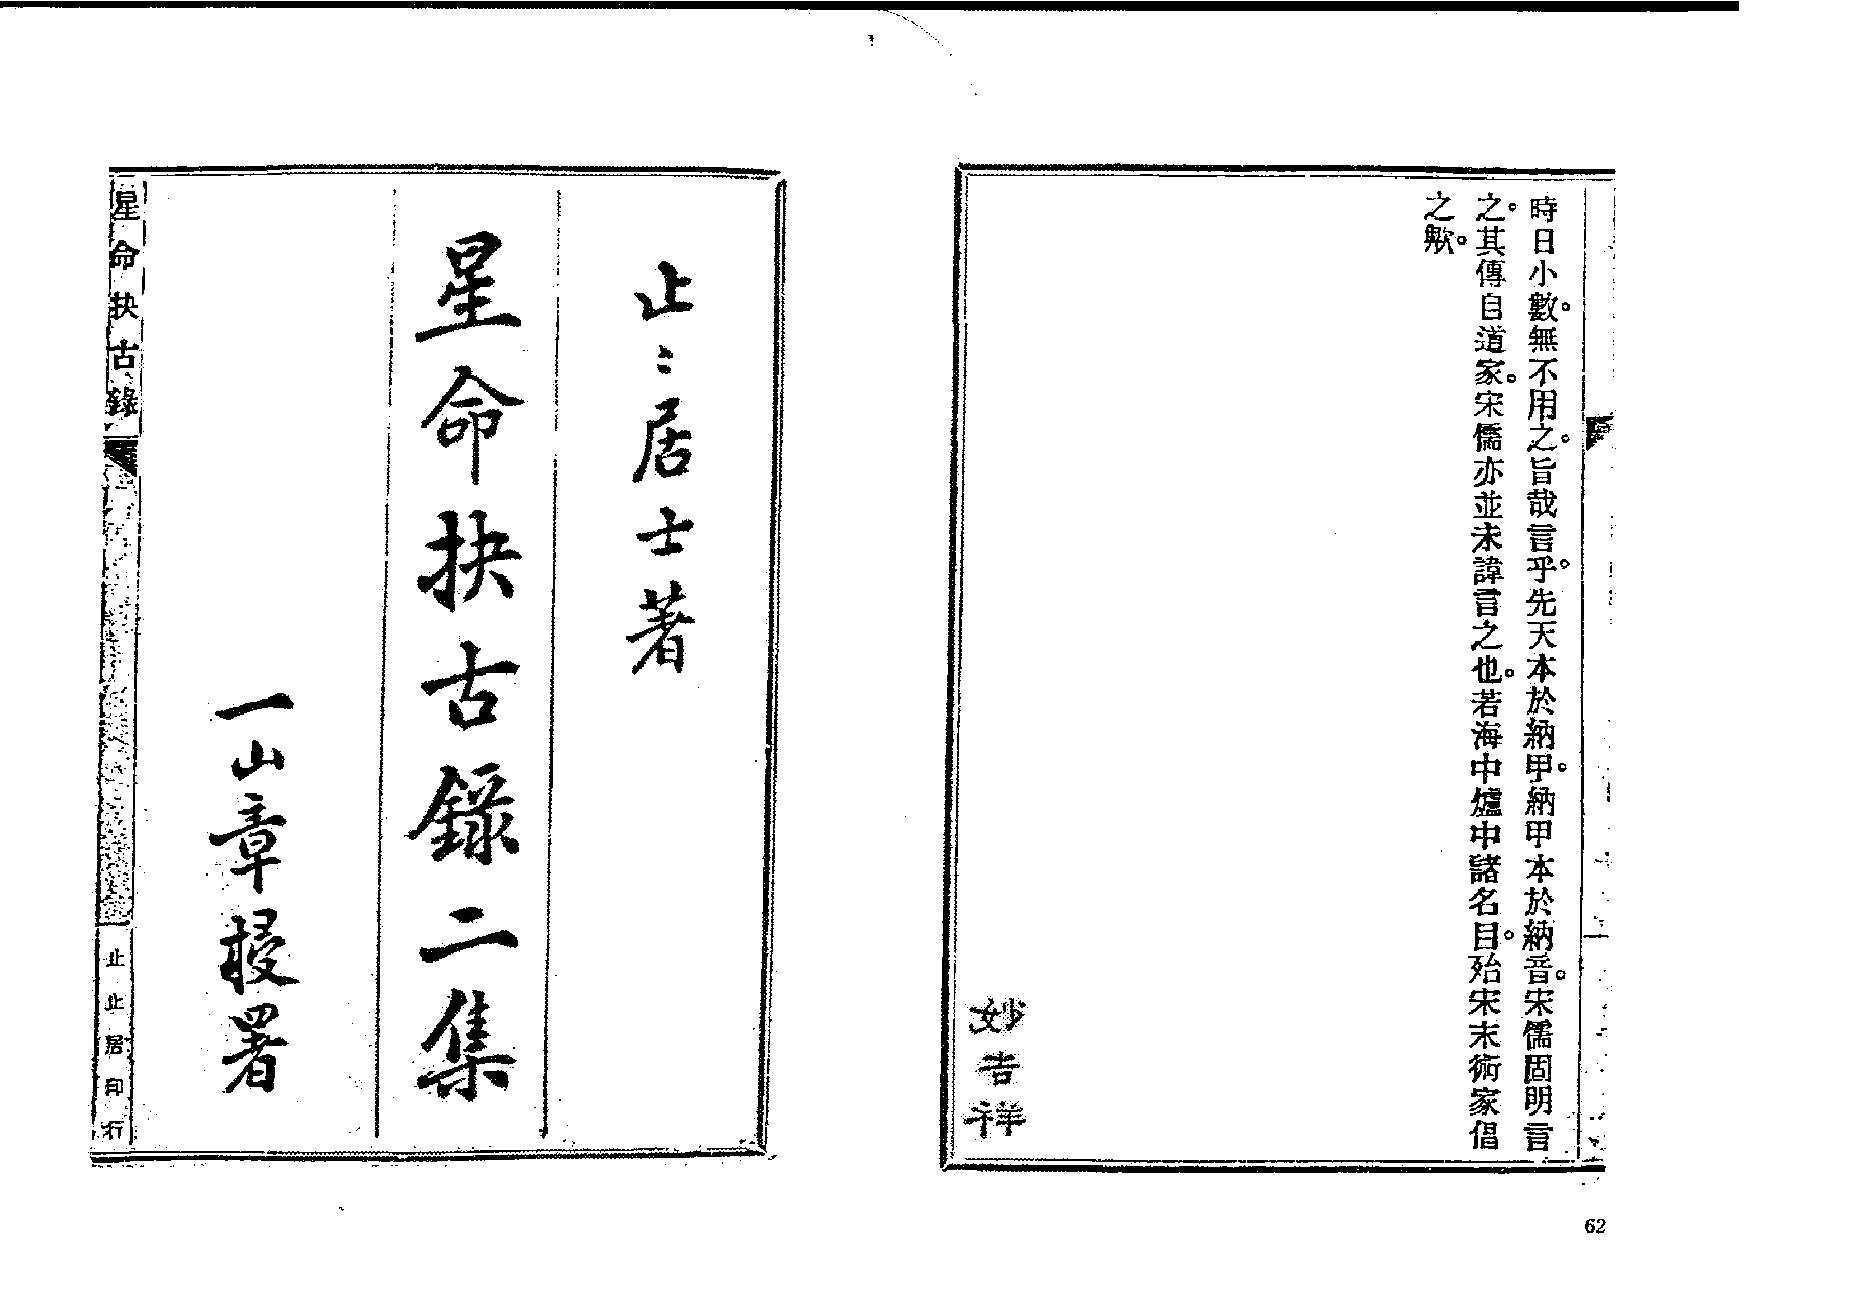 時日小數。無不用之。旨哉言乎。先天本於納甲。納甲本於納音。宋儒固明言
之。其傳自道家。宋儒亦並未諱言之也。若海中爐中諸名目。殆宋末術家倡
之歟。
妙吉祥
62
止〻居士著
星命抉古錄二集
一山章梫署
星命抉古錄
止止居印行